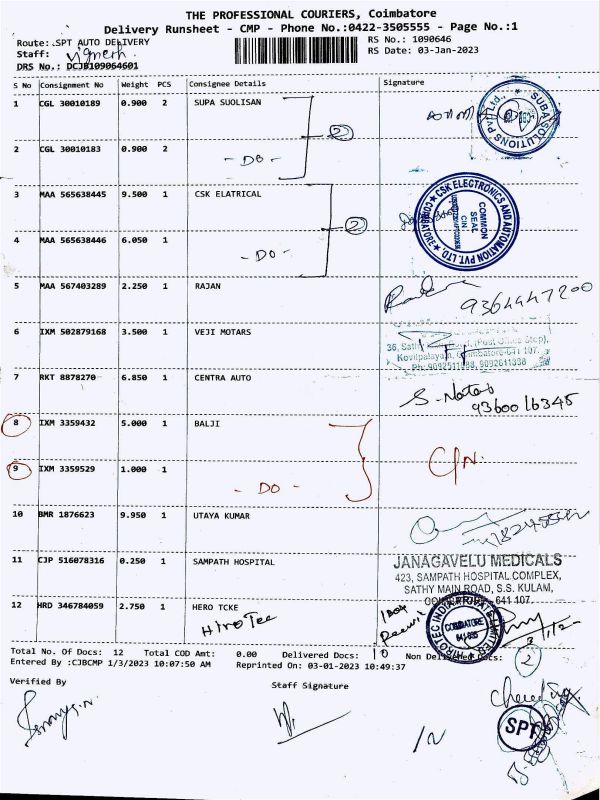 THE PROFESSIONAL COURIERS, Coimbatore
Delivery Runsheet - CMP - Phone No.:0422-3505555 - Page No.:1
Route: SPT AUTO DELIVERY RS No.: 1090646
Staff: Vignesh. RS Date: 03-Jan-2023
DRS No.: DCJB109064601
S No Consignment No Weight PCS Consignee Details Signature
1 CGL 30010189 0.900 2 SUPA SUOLISAN
2
SUBA SOLUTIONS PVT. Ltd.,
2 CGL 30010183 0.900 2 - DO -
3 MAA 565638445 9.500 1 CSK ELATRICAL
2
CSK ELECTRONICS AND AUTOMATION PVT. LTD.
COMMON SEAL
4 MAA 565638446 6.050 1 - DO -
5 MAA 567403289 2.250 1 RAJAN
9364447200
6 IXM 502879168 3.500 1 VEJI MOTARS
(Post Office Stop),
Kovilpalayam, Coimbatore-641 107.
7 RKT 8878270 6.850 1 CENTRA AUTO
9360016345
8 IXM 3359432 5.000 1 BALJI
C/N.
9 IXM 3359529 1.000 1 - DO -
10 BMR 1876623 9.950 1 UTAYA KUMAR
11 CJP 516078316 0.250 1 SAMPATH HOSPITAL
JANAGAVELU MEDICALS
423, SAMPATH HOSPITAL COMPLEX,
SATHY MAIN ROAD, S.S. KULAM,
641 107.
12 HRD 346784059 2.750 1 HERO TCKE
HiroTec
COIMBATORE
Total No. Of Docs: 12 Total COD Amt: 0.00 Delivered Docs: 10 Non Delivered Docs: 2
Entered By :CJBCMP 1/3/2023 10:07:50 AM Reprinted On: 03-01-2023 10:49:37
Verified By Staff Signature
SPT